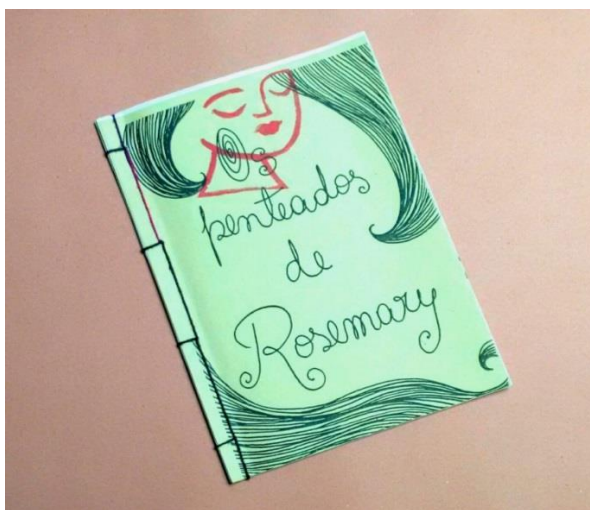 Os
penteados
de
Rosemary